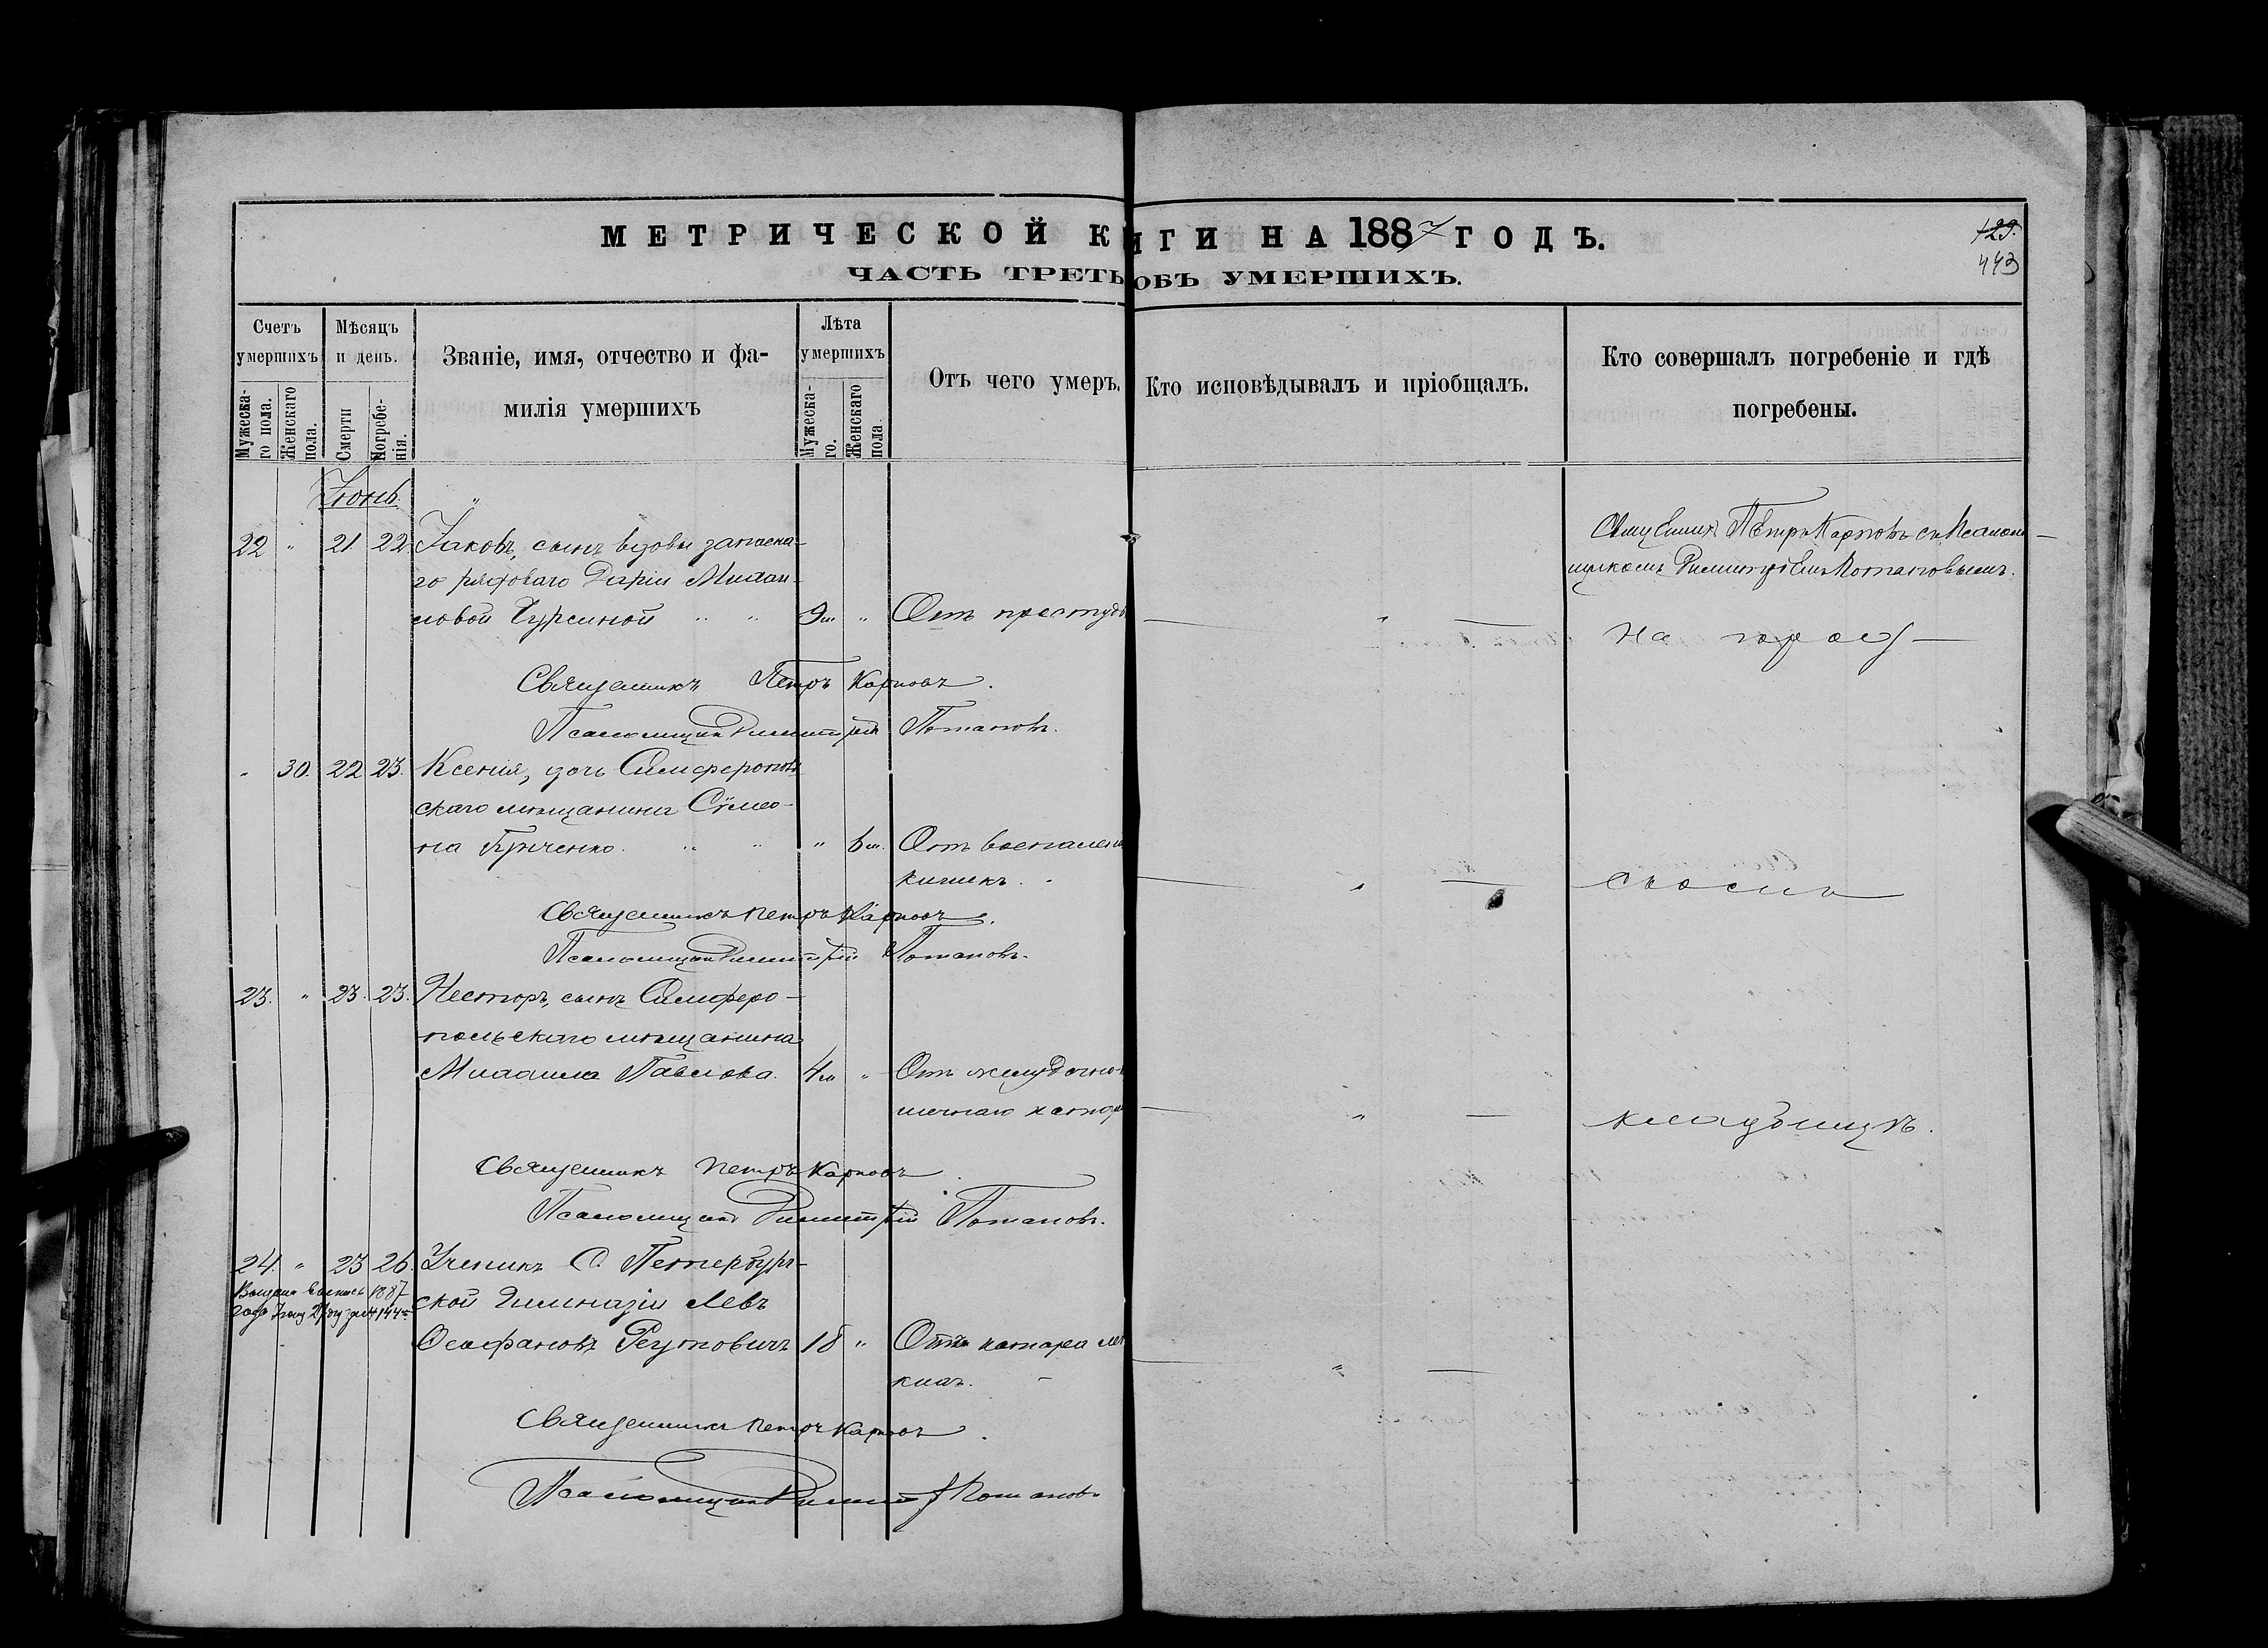 МЕТРИЧЕСКОЙ КНИГИ НА 1887 ГОДЪ.
ЧАСТЬ ТРЕТЬ ОБЪ УМЕРШИХЪ.
129.
443
Счетъ умершихъ
Мужеска-го пола.
Женскаго пола.
Мѣсяцъ и день.
Смерти
Погребе-нія.
Званіе, имя, отчество и фа-
милія умершихъ
Лѣта умершихъ
Мужеска-го.
Женскаго пола.
Отъ чего умеръ.
Кто исповѣдывалъ и пріобщалъ.
Кто совершалъ погребеніе и гдѣ
погребены.
Іюнь.
22 " 21 22 Іаковъ, сынъ вдовы запасна-
го рядоваго Даріи Михаи-
ловой " " 9 м. " Отъ простуды
Священникъ Петръ Карповъ съ Псалом-
щикомъ Димитріемъ Потаповымъ.
на город-
Священникъ Петръ Карповъ.
Псаломщикъ Димитрій Потаповъ.
" 30. 22 23. Ксенія, дочь Симферополь
скаго мѣщанина Сѵмео-
на " " " 6 м. Отъ воспаленія
кишекъ.
скомъ
Священникъ Петръ Карповъ.
Псаломщикъ Димитрій Потаповъ.
23. " 23. 23. Несторъ, сынъ Симферо-
польскаго мѣщанина
Михаила Павлова. 4 м " Отъ желудочно-
катара
кладбищѣ.
Священникъ Петръ Карповъ.
Псаломщикъ Димитрій Потаповъ.
24. " 23 26. Ученикъ С. Петербург-
1887
ской Гимназіи Левъ
года
Реутовичъ 18 " Отъ катара лег
кихъ.
Священникъ Петръ Карповъ.
Псаломщикъ Димитр Потаповъ